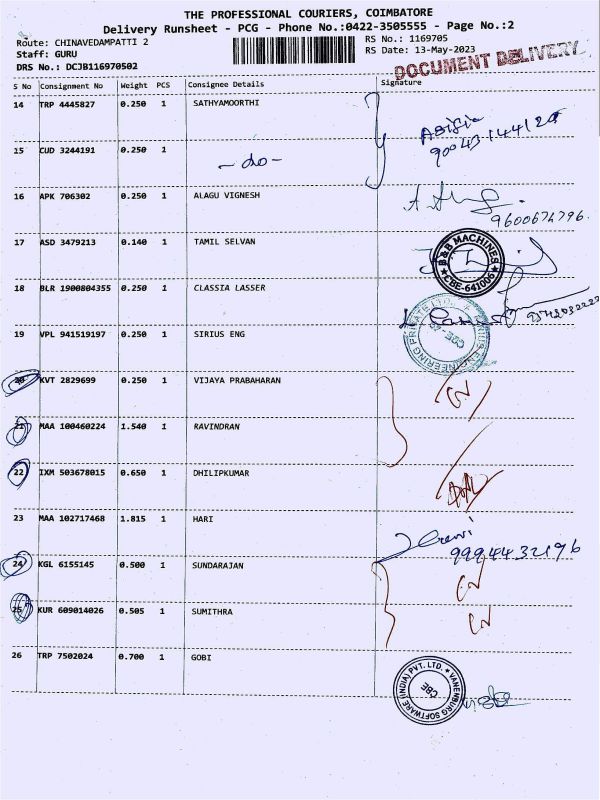 THE PROFESSIONAL COURIERS, COIMBATORE
Delivery Runsheet - PCG - Phone No.:0422-3505555 - Page No.:2
Route: CHINAVEDAMPATTI 2 RS No.: 1169705
Staff: GURU RS Date: 13-May-2023
DRS No.: DCJB116970502
DOCUMENT DELIVERY
S No Consignment No Weight PCS Consignee Details Signature
14 TRP 4445827 0.250 1 SATHYAMOORTHI
15 CUD 3244191 0.250 1 -do-
16 APK 706302 0.250 1 ALAGU VIGNESH
9600674796.
17 ASD 3479213 0.140 1 TAMIL SELVAN
B&B MACHINES
CBE-641006
18 BLR 1900804355 0.250 1 CLASSIA LASSER
19 VPL 941519197 0.250 1 SIRIUS ENG
20 KVT 2829699 0.250 1 VIJAYA PRABAHARAN
21 MAA 100460224 1.540 1 RAVINDRAN
22 IXM 503678015 0.650 1 DHILIPKUMAR
23 MAA 102717468 1.815 1 HARI
9994432196
24 KGL 6155145 0.500 1 SUNDARAJAN
25 KUR 609014026 0.505 1 SUMITHRA
26 TRP 7502024 0.700 1 GOBI
VANENBURG SOFTWARE (INDIA) PVT. LTD.
CBE